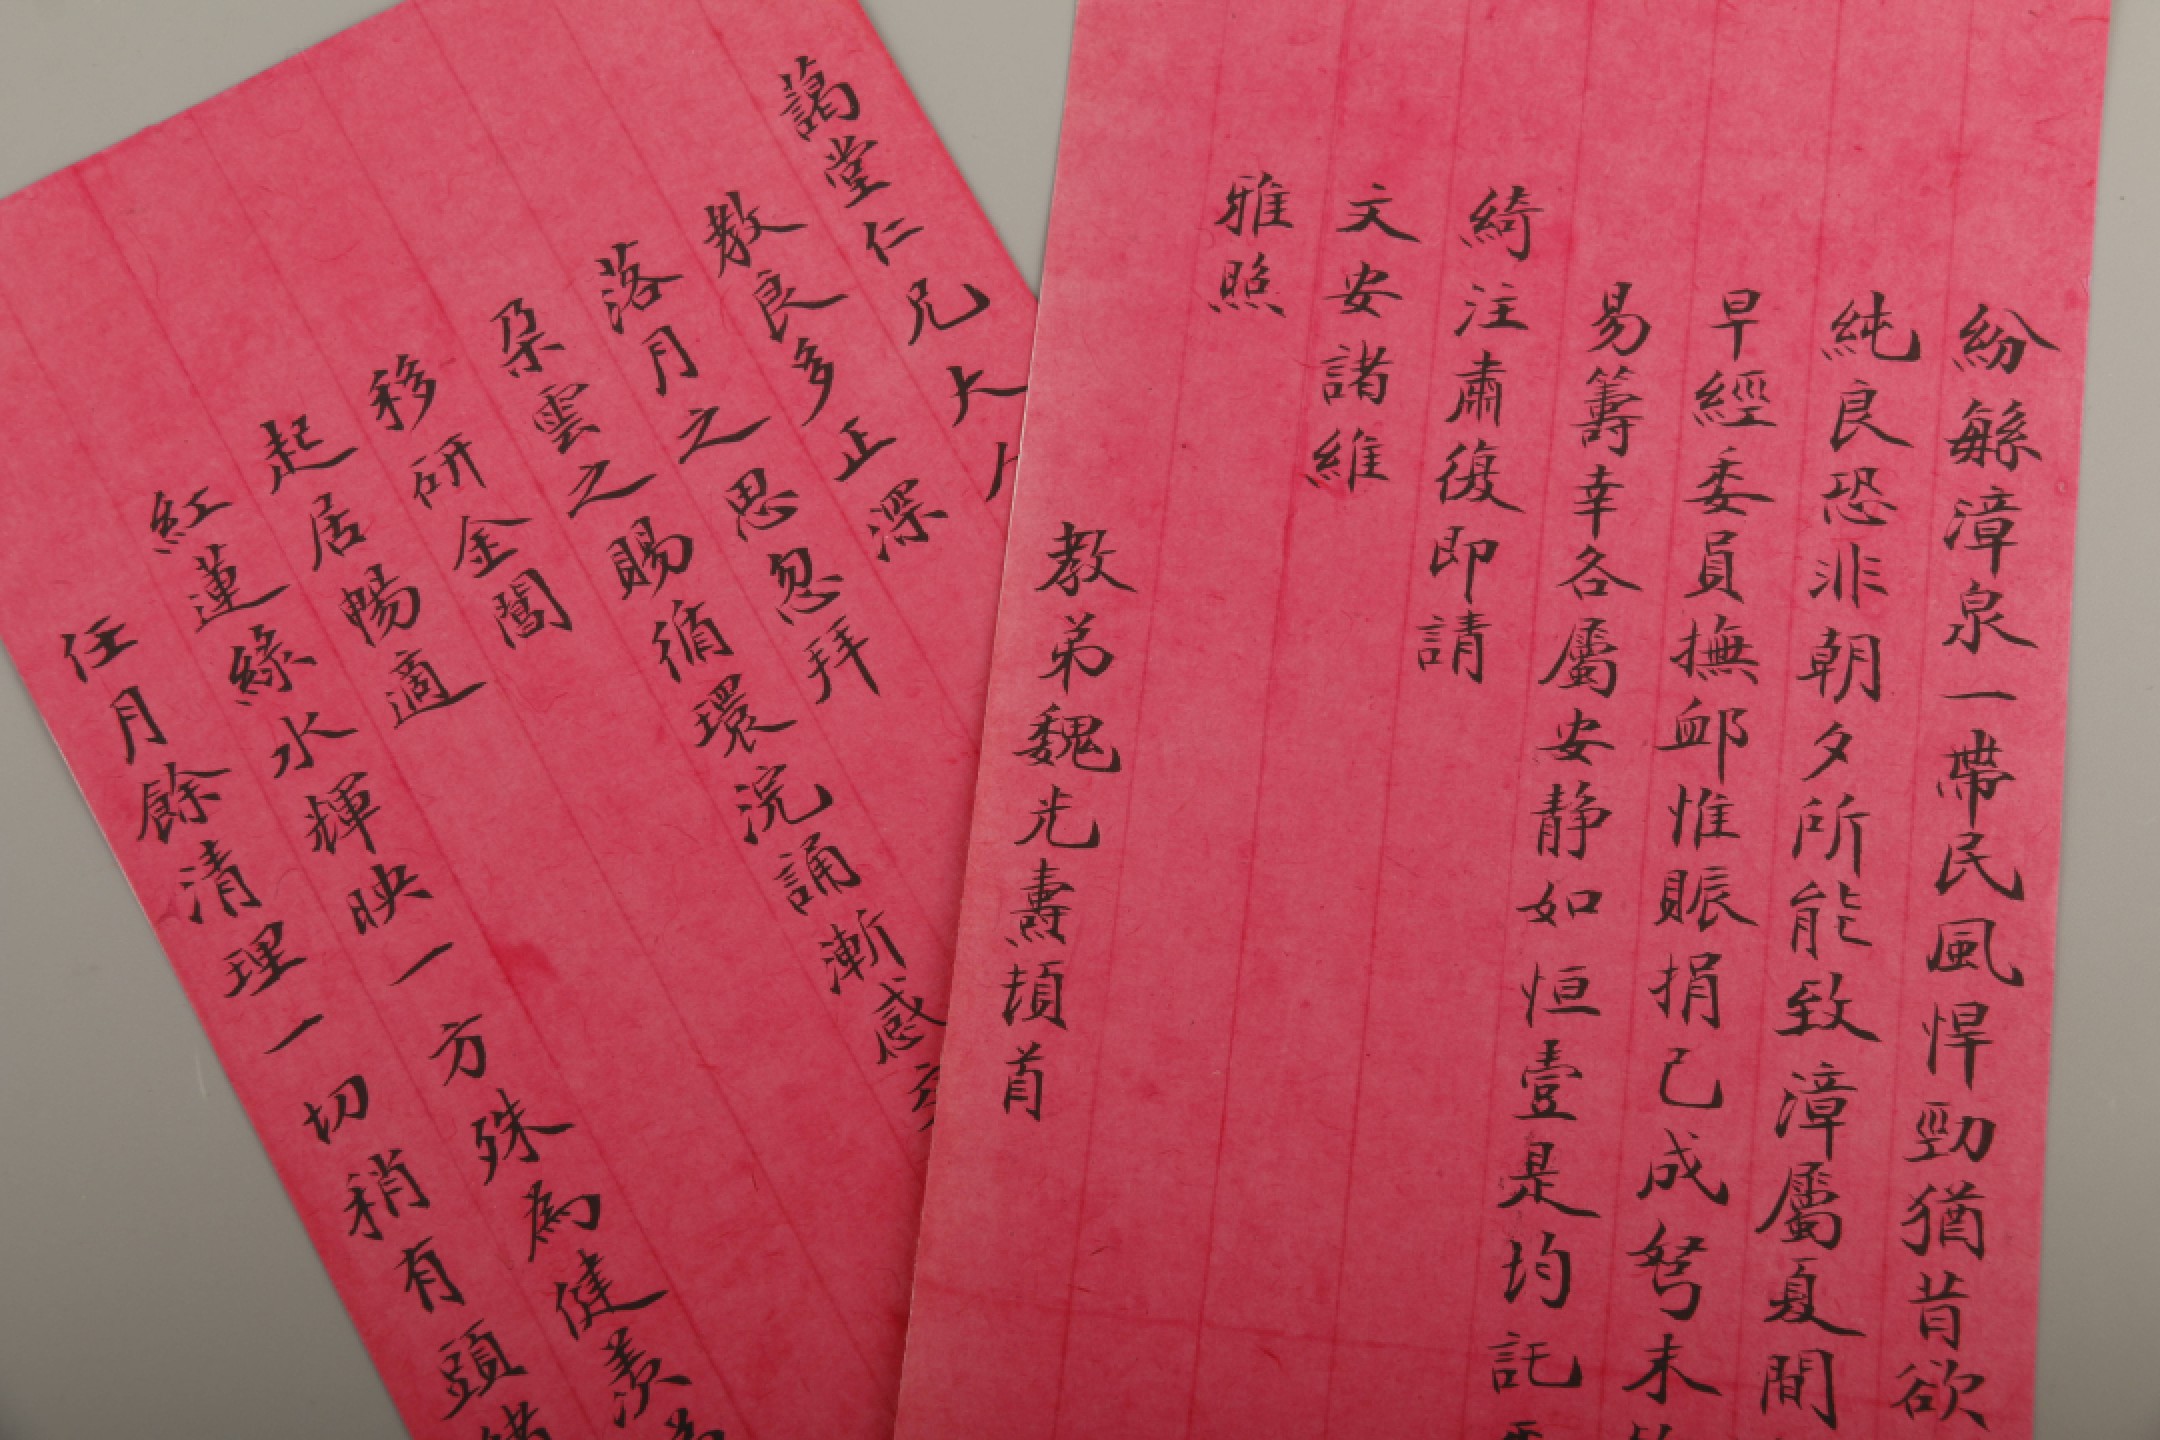 藹堂仁兄大
教良多正深
落月之思忽拜
朶雲之賜循環浣誦漸感
移研金閶
起居暢適
紅蓮綠水輝映一方殊為健羨
任月餘清理一切稍有頭緒
紛繁漳泉一帶民風悍勁猶昔欲
純良恐非朝夕所能致漳屬夏間
早經委員撫卹惟賑捐已成弩末
易籌幸各屬安静如恒壹是均託
綺注肅復即請
文安諸維
雅照
教弟魏光燾頓首